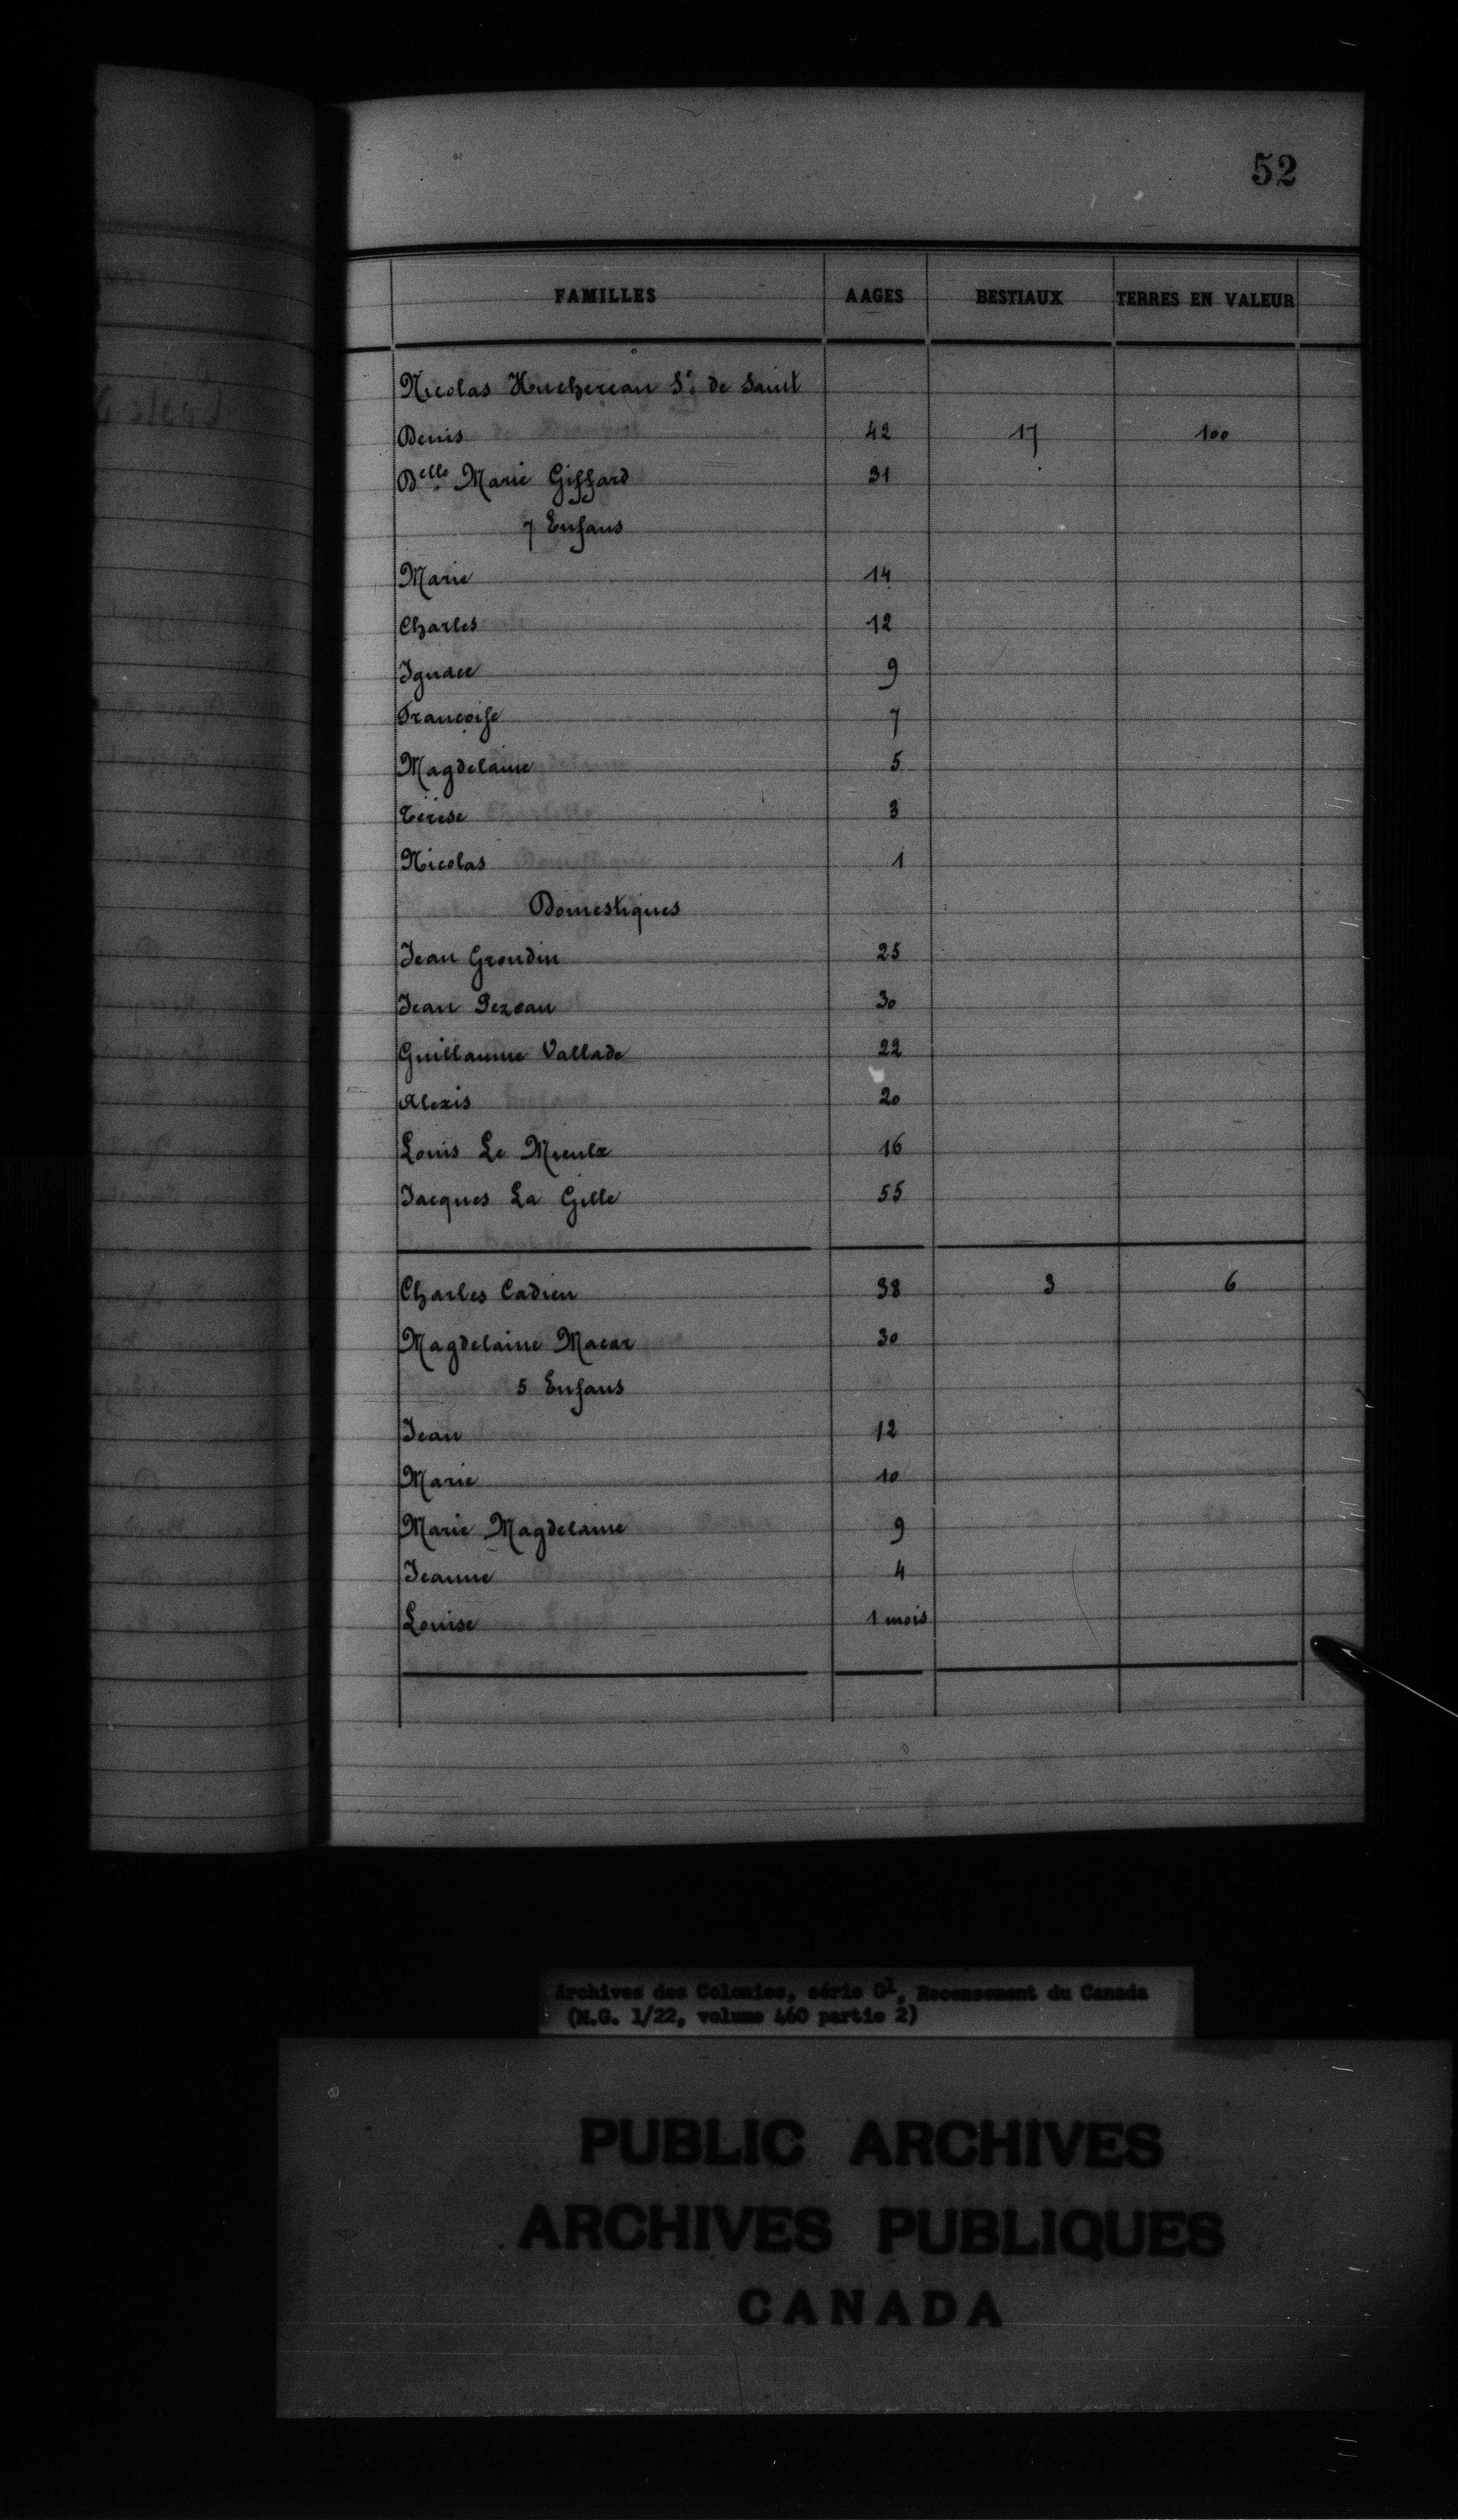 52
FAMILLES AAGES BESTIAUX TERRES EN VALEUR
Nicolas Huchereau Sr. de Saint
Denis 42 17 100
Delle. Marie Giffard 31
7 Enfans
Marie 14
Charles 12
Ignace 9
Francoise 7
Magdelaine 5
Terese 3
Nicolas 1
Domestiques
Jean Grondin 25
Jean Pezeau 30
Guillaume Vallade 22
Alexis 20
Louis Le Mieulx 16
Jacques La Gille 55
Charles Cadieu 38 3 6
Magdelaine Macar 30
5 Enfans
Jean 12
Marie 10
Marie Magdelaine 9
Jeanne 4
Louise 1 mois
Archives des Colonies, série G1, Recensement du Canada
(M.G. 1/22, volume 460 partie 2)
PUBLIC ARCHIVES
ARCHIVES PUBLIQUES
CANADA